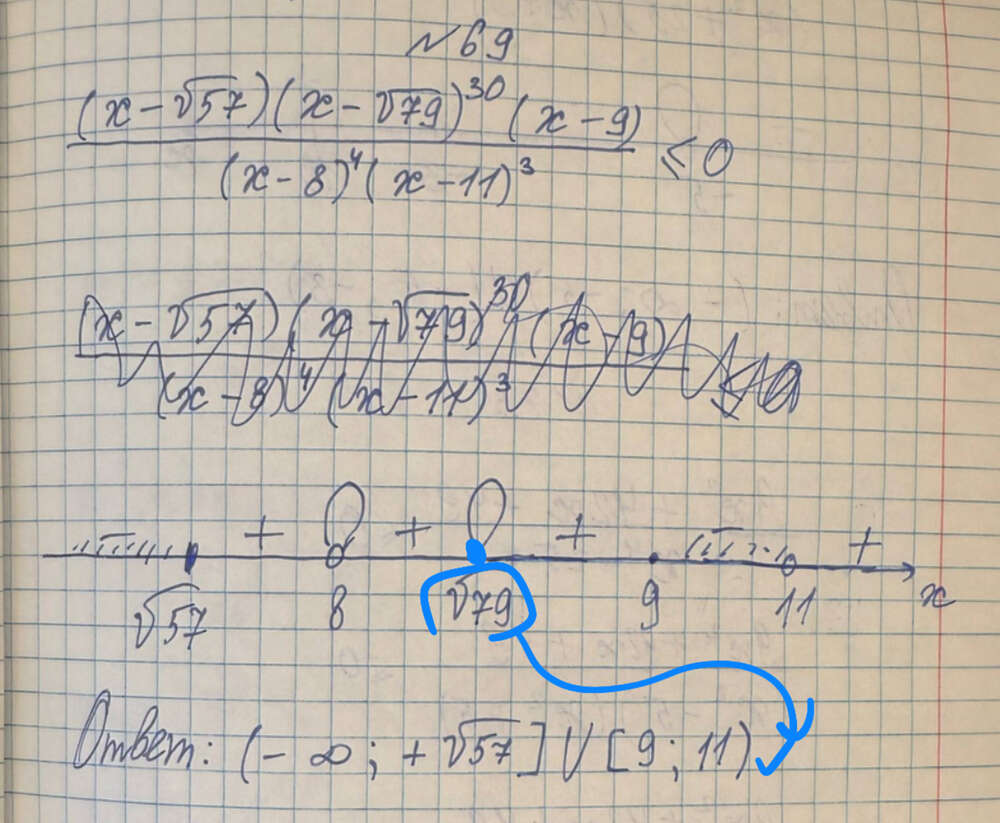 №69
(x-√57)(x-√79)^30 (x-9)
(x-8)^4 (x-11)^3 ≤ 0
(x-√57)(x-√79)^30 (x-9)
(x-8)^4 (x-11)^3 ≤ 0
+ + + - +
√57 8 √79 9 11 x
Ответ: (-∞; +√57] ∪ [9; 11)